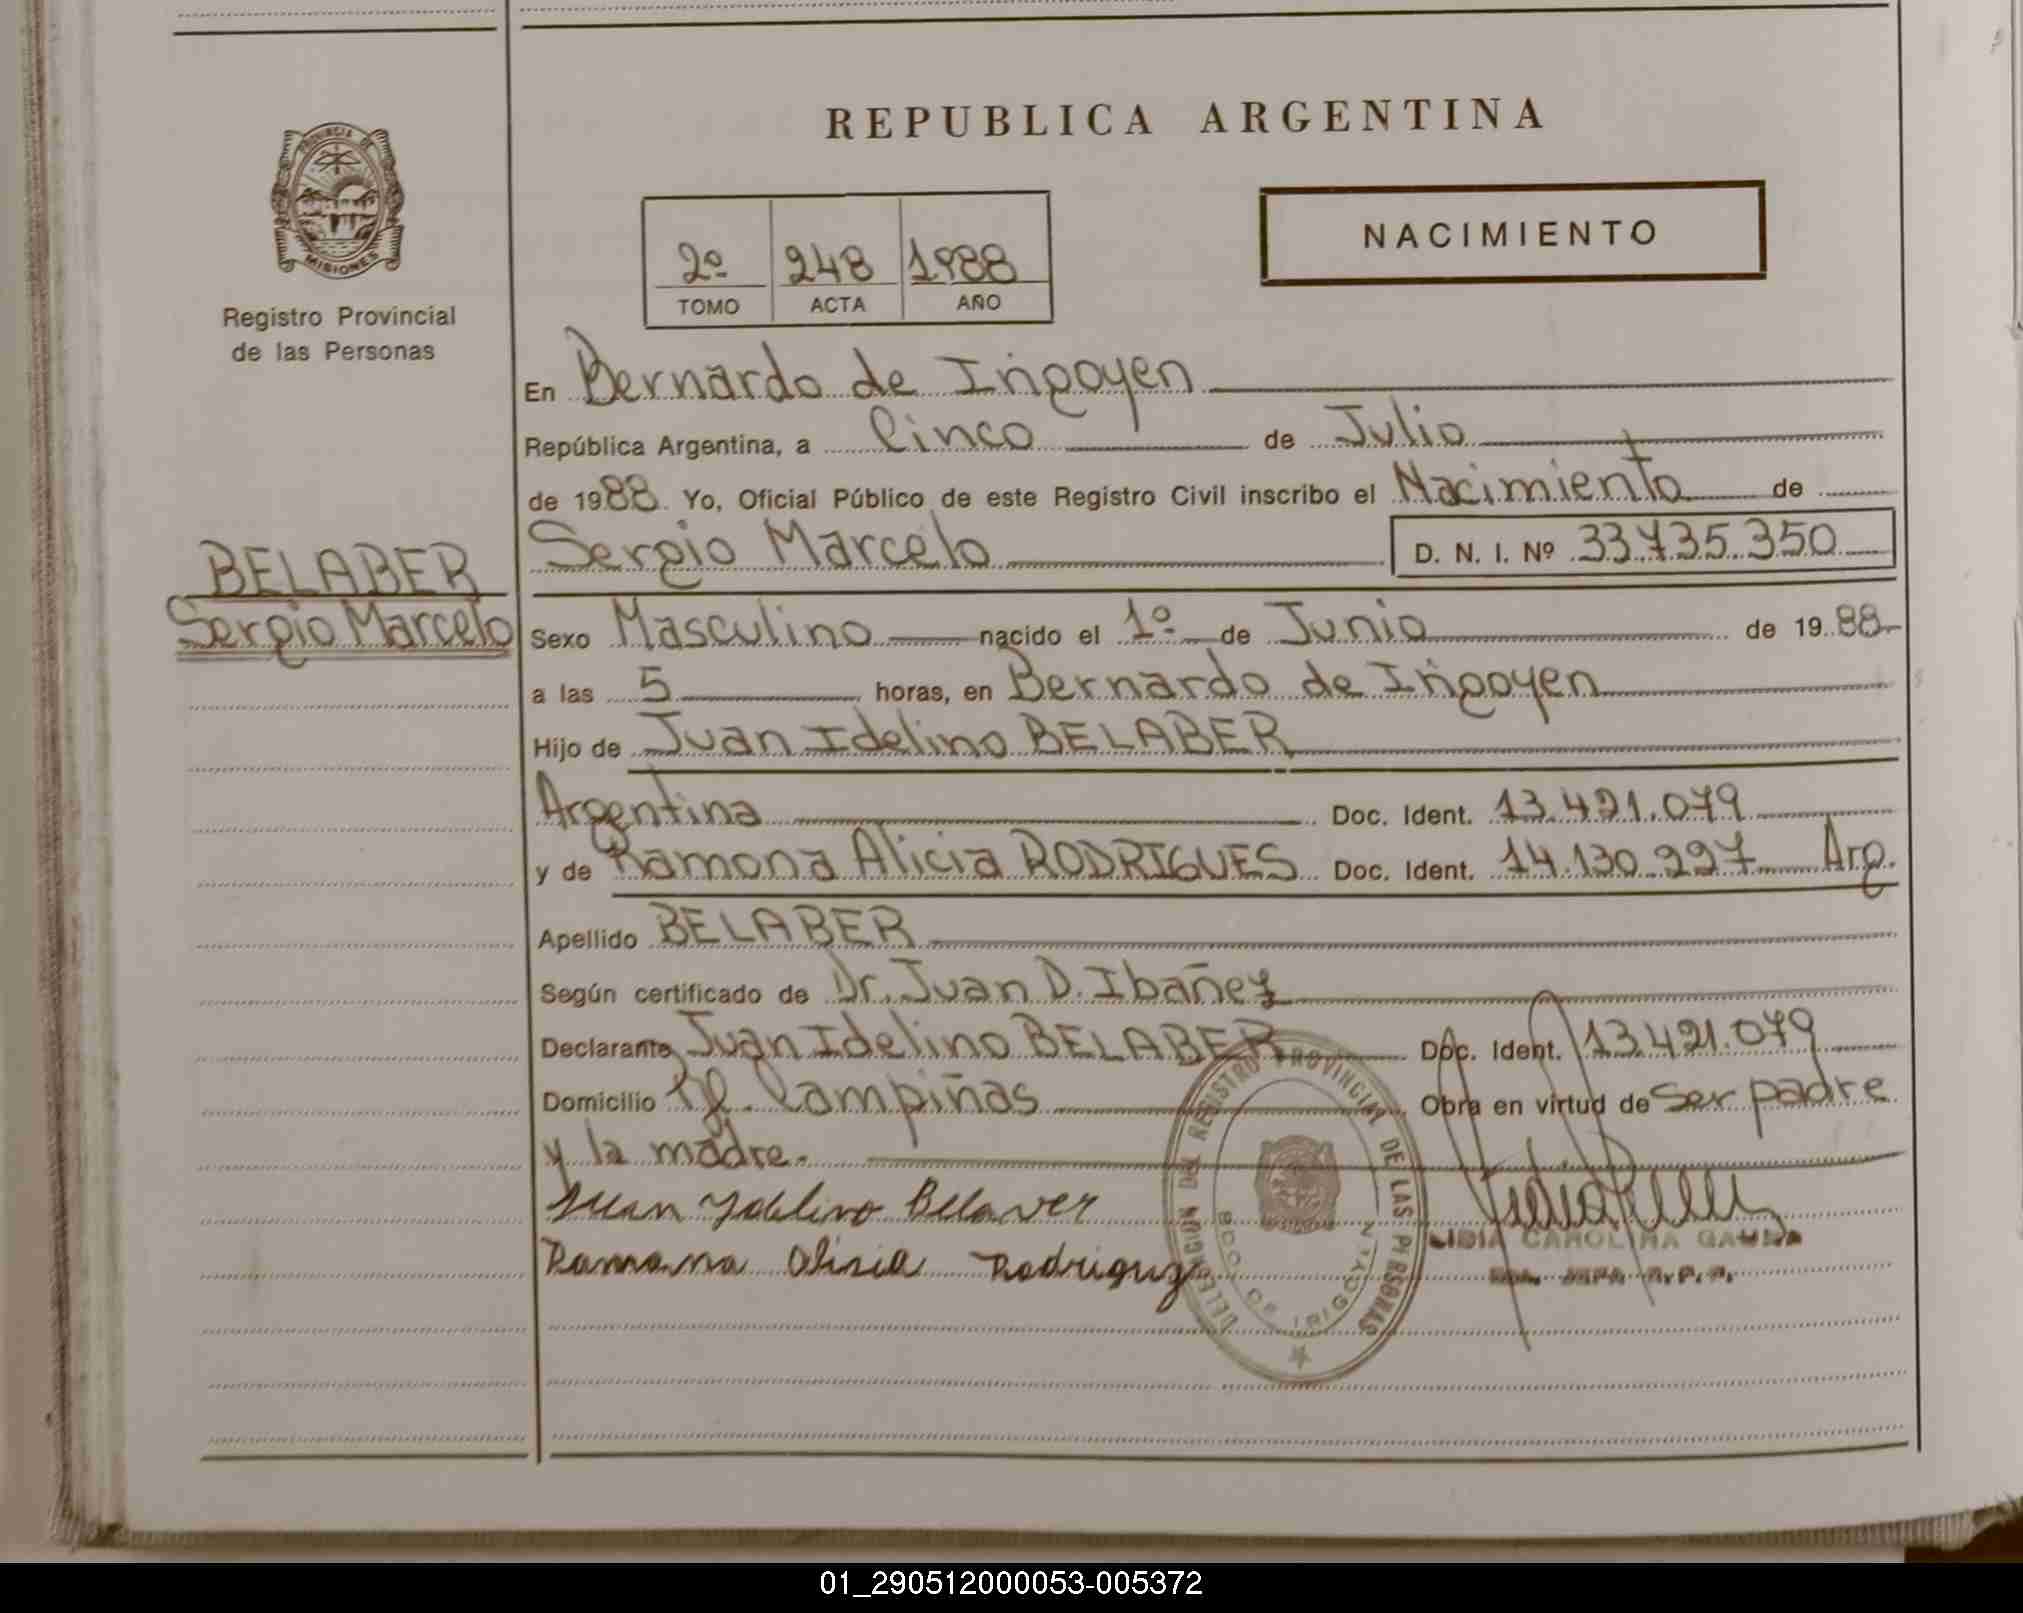 REPUBLICA ARGENTINA
PROVINCIA DE
MISIONES
Registro Provincial
de las Personas
2º 248 1988
TOMO ACTA AÑO
NACIMIENTO
En Bernardo de Irigoyen
República Argentina, a Cinco de Julio
de 1988. Yo, Oficial Público de este Registro Civil inscribo el Nacimiento de
Sergio Marcelo D. N. I. Nº 33.735.350
BELABER
Sergio Marcelo
Sexo Masculino nacido el 1º de Junio de 1988
a las 5 horas, en Bernardo de Irigoyen
Hijo de Juan Idelino BELABER
Argentina Doc. Ident. 13.421.079
y de Ramona Alicia RODRIGUES Doc. Ident. 14.130.227 Arg.
Apellido BELABER
Según certificado de Dr. Juan D. Ibañez
Declarante Juan Idelino BELABER Doc. Ident. 13.421.079
Domicilio Campiñas Obra en virtud de ser padre
y la madre.
Juan Idelino Belaver
Ramona Alisia Rodriguz
DELEGACION DEL REGISTRO PROVINCIAL DE LAS PERSONAS
BDO. DE IRIGOYEN
LIDIA CAROLINA
R.P.P.
01_290512000053-005372